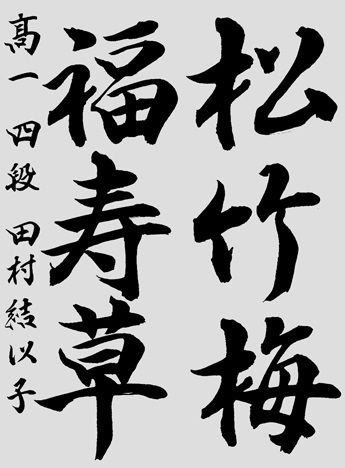 松竹梅
福寿草
髙一 四段 田村結以子